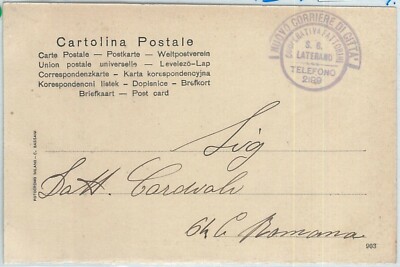 Cartolina Postale
Carte Postale — Postkarte — Weltpostverein
Union postale universelle — Levelező-Lap
Correspondenzkarte - Karta korespondencyjna
Korespondenoni listek - Dopisnice - Brefkort
Briefkaart — Post card
NUOVO CORRIERE DI CITTÀ
COOPERATIVA FATTORINI
S. G.
LATERANO
TELEFONO
2199
Sig
Dott. Carduoli
Romana
963